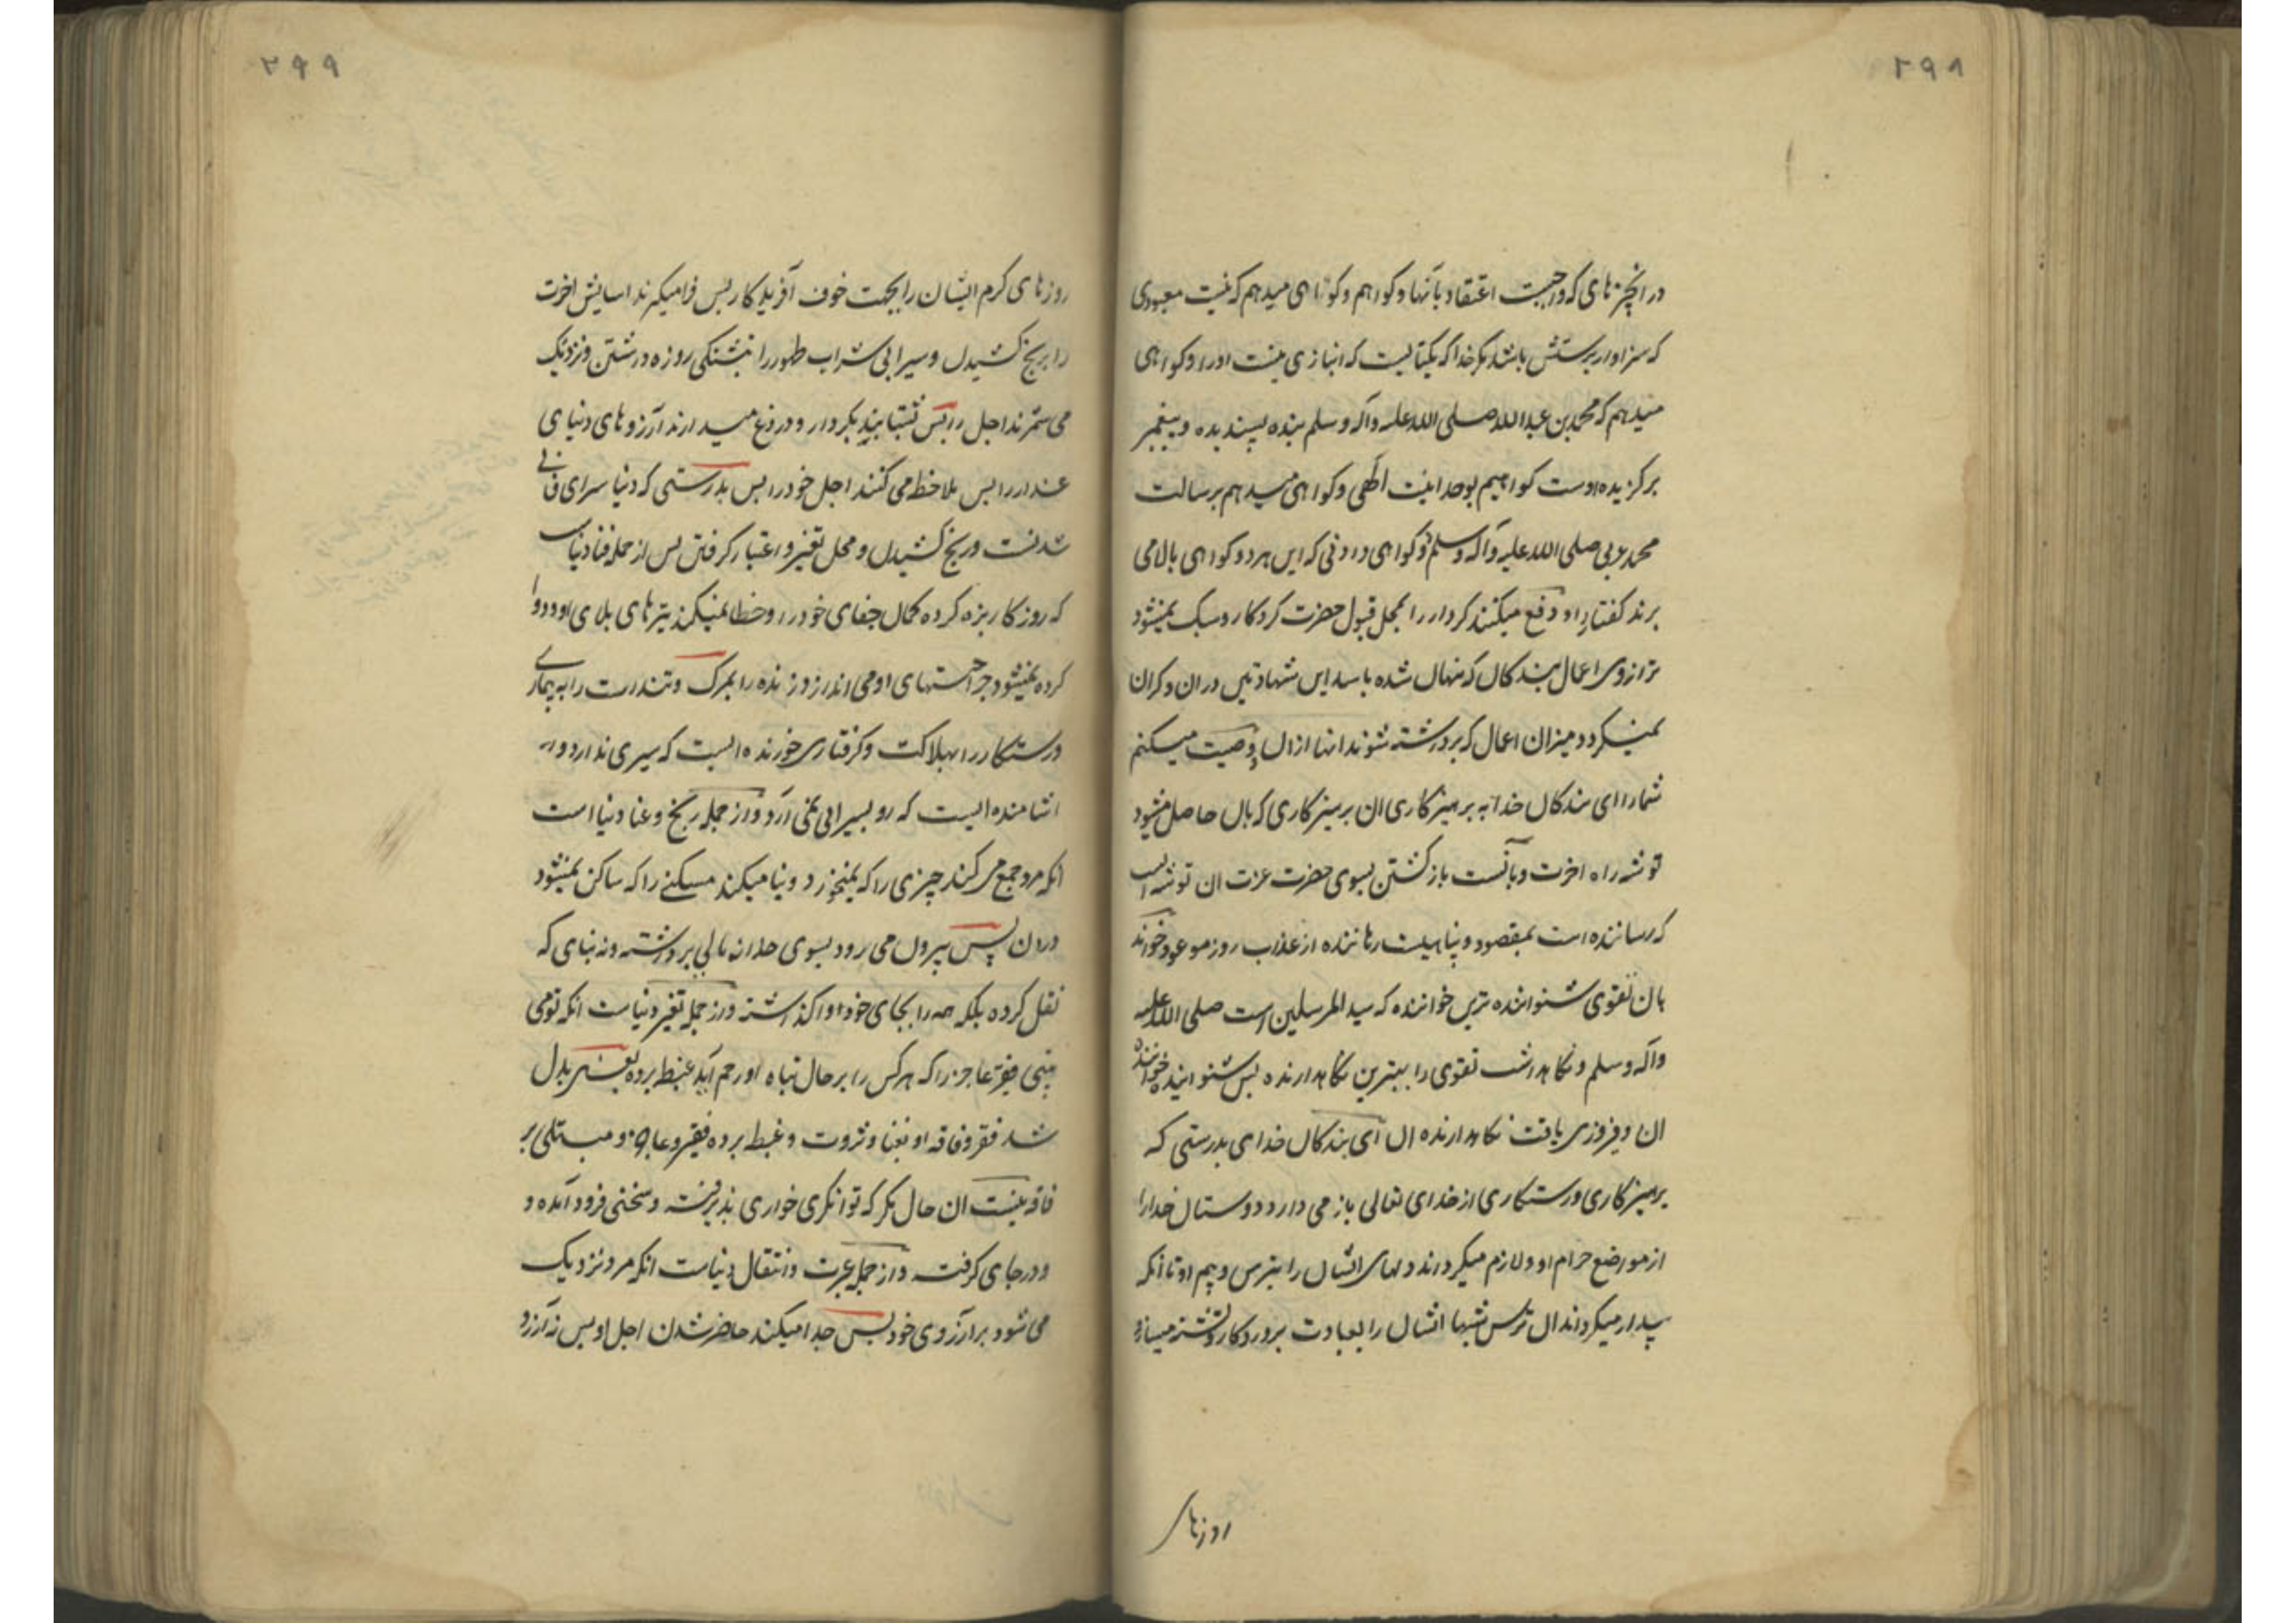 ۲۹۸
در انچیزهای که واجبست اعتقاد بآنها و کواهم و کواهی میدهم که نیست معبودی
که سزاوار پرستش باشد مکر خدا که یکتا ایست که انبازی نیست او را و کواهی
میدهم که محمد بن عبدالله صلی الله علیه وآله وسلم بنده پسندیده و پیغمبر
برکزیده اوست کواهیم بوحدانیت الهی و کواهی میدهم برسالت
محمد عربی صلی الله علیه وآله وسلم دو کواهی دادنی که این هر دو کواهی بالا می
برند کفتار را و دفع میکنند کردار را بمحل قبول حضرت کردکار و سبک نمیشود
ترازوی اعمال بندکان که نهان شده باشد این شهادتین در ان و کران
نمیکردد میزان اعمال که برداشته شوند انها از ان وصیت میکنم
شما را ای بندکان خدا به پرهیزکاری ان پرهیزکاری که بان حاصل میشود
توشه راه اخرت و بآنست بازکشتن بسوی حضرت عزت ان توشه ایست
که رساننده است بمقصود و پناهیست رهاننده از عذاب روز موعود خواند
بان تقوی شنواننده ترین خواننده که سید المرسلین است صلی الله علیه
وآله وسلم و نکاهداشت تقوی را بهترین نکاهدارنده پس شنوانید خواننده
ان و فیروزی یافت نکاهدارنده ان ای بندکان خدای بدرستی که
پرهیزکاری و رستکاری از خدای تعالی باز می دارد دوستان خدا را
از مواضع حرام او و لازم میکرداند دلهای ایشان را بترس و بیم او تا آنکه
بیدار میکرداند ان ترس شبها ایشان را بعبادت پروردکار و تشنه میسازد
روزهای
۲۹۹
روزهای کرم ایشان را بجهت خوف آفریدکار پس فرامیکیرند اسایش اخرت
را برنج کشیدن و سیرابی شراب طهور را بتشنکی روزه داشتن و نزدیک
می شمرند اجل را پس شتابند بکردار و دروغ میدارند آرزوهای دنیای
غدار را پس ملاحظه می کنند اجل خود را پس بدرستی که دنیا سرای فانی
شدنست و رنج کشیدن و محل تغیر و اعتبار کرفتن پس از جمله فنا دنیاست
که روزکار بزه کرده کمان جفای خود را و خطا نمیکند تیرهای بلای او و دوا
کرده نمیشود جراحتهای او می اندازد زنده را بمرک و تندرست را به بیماری
و رستکار را بهلاکت و کرفتاری خورنده ایست که سیری ندارد و
اشامنده ایست که رو بسیرابی نمی آرد و از جمله رنج و عنا دنیا است
انکه مرد جمع می کند چیزی را که نمیخورد و بنا میکند مسکنی را که ساکن نمیشود
در ان پس بیرون می رود بسوی خدا نه مالی برداشته و نه بنای که
نقل کرده بلکه همه را بجای خود واکذاشته و از جمله تغیر دنیاست انکه تو می
بینی فقیر عاجز را که هر کس را بر حال تباه او رحم آید غبط برده یعنی بدل
شد فقر و فاقه او بغنا و ثروت و غبط برده فقیر و عاجز و مبتلی بر
فاقه نیست ان حال مکر که توانکری خواری پذیرفته و سختی فرود آمده و
و در جای کرفت و از جمله عبرت و انتقال دنیاست انکه مرد نزدیک
می شود بر آرزوی خود پس جدا میکند حاضر شدن اجل او پس نه آرزو